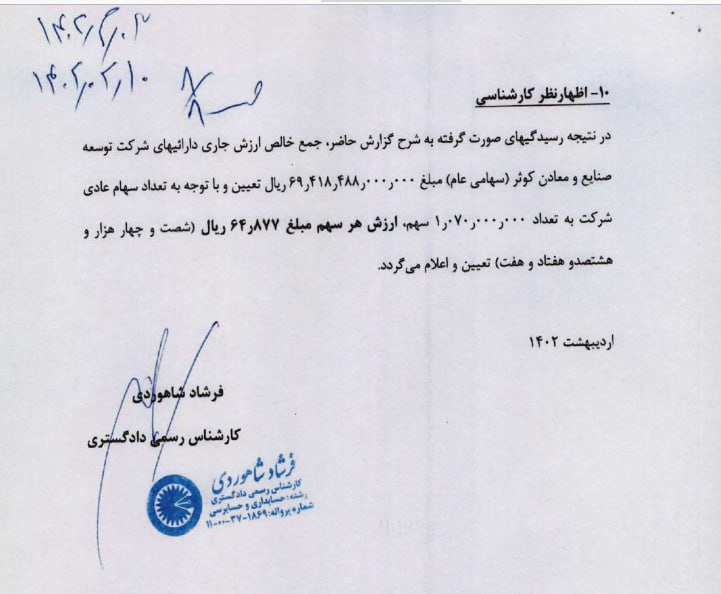 ۱۴۰۲٫۰۲٫۱۰
۸/۸
۱۰- اظهارنظر کارشناسی
در نتیجه رسیدگیهای صورت گرفته به شرح گزارش حاضر، جمع خالص ارزش جاری دارائیهای شرکت توسعه
صنایع و معادن کوثر (سهامی عام) مبلغ ۶۹٫۴۱۸٫۴۸۸٫۰۰۰٫۰۰۰ ریال تعیین و با توجه به تعداد سهام عادی
شرکت به تعداد ۱٫۰۷۰٫۰۰۰٫۰۰۰ سهم، ارزش هر سهم مبلغ ۶۴٫۸۷۷ ریال (شصت و چهار هزار و
هشتصدو هفتاد و هفت) تعیین و اعلام می‌گردد.
اردیبهشت ۱۴۰۲
فرشاد شاهوردی
کارشناس رسمی دادگستری
فرشاد شاهوردی
کارشناس رسمی دادگستری
رشته: حسابداری و حسابرسی
شماره پروانه: ۱۸۶۹-۳۷-۰۰-۱۱